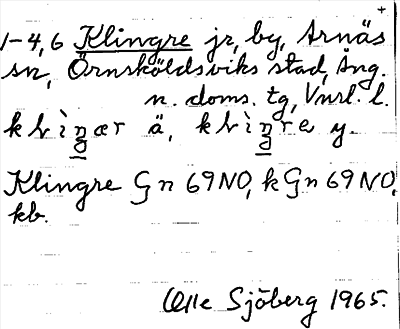 +
1-4,6 Klingre jr, by, Arnäs
sn, Örnsköldsviks stad, Ång.
n. doms. tg, Vnrl. l.
ä, y.
Klingre Gn 69 NO, k Gn 69 NO,
kb.
Olle Sjöberg 1965.